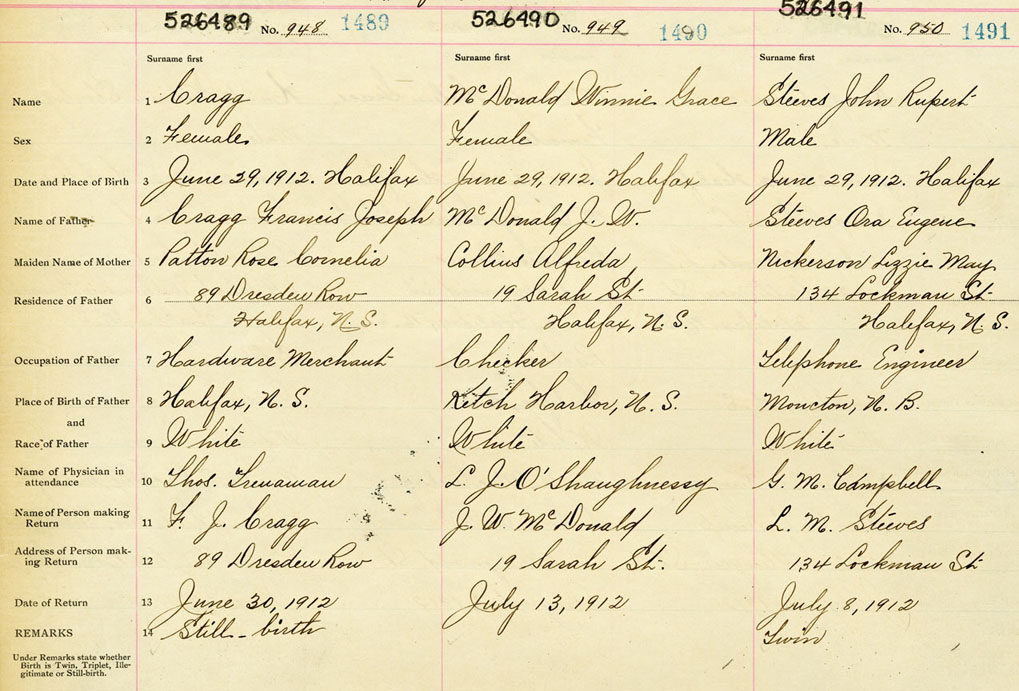 526489 No. 948 1489 526490 No. 949 1490 526491 No. 950 1491
Surname first Surname first Surname first
Name 1 Cragg McDonald Winnie Grace Steeves John Rupert
Sex 2 Female Female Male
Date and Place of Birth 3 June 29, 1912. Halifax June 29, 1912. Halifax June 29, 1912. Halifax
Name of Father 4 Cragg Francis Joseph McDonald J. W. Steeves Ora Eugene
Maiden Name of Mother 5 Patton Rose Cornelia Collins Alfreda Nickerson Lizzie May
Residence of Father 6 89 Dresden Row 19 Sarah St. 134 Lockman St.
Halifax, N.S. Halifax, N.S. Halifax, N.S.
Occupation of Father 7 Hardware Merchant Checker Telephone Engineer
Place of Birth of Father 8 Halifax, N.S. Ketch Harbor, N.S. Moncton, N.B.
and
Race of Father 9 White White White
Name of Physician in
attendance 10 Thos. Trenaman L. J. O'Shaughnessy G. M. Campbell
Name of Person making
Return 11 F. J. Cragg J. W. McDonald L. M. Steeves
Address of Person mak-
ing Return 12 89 Dresden Row 19 Sarah St. 134 Lockman St
Date of Return 13 June 30, 1912 July 13, 1912 July 8, 1912
REMARKS 14 Still-birth Twin
Under Remarks state whether
Birth is Twin, Triplet, Ille-
gitimate or Still-birth.